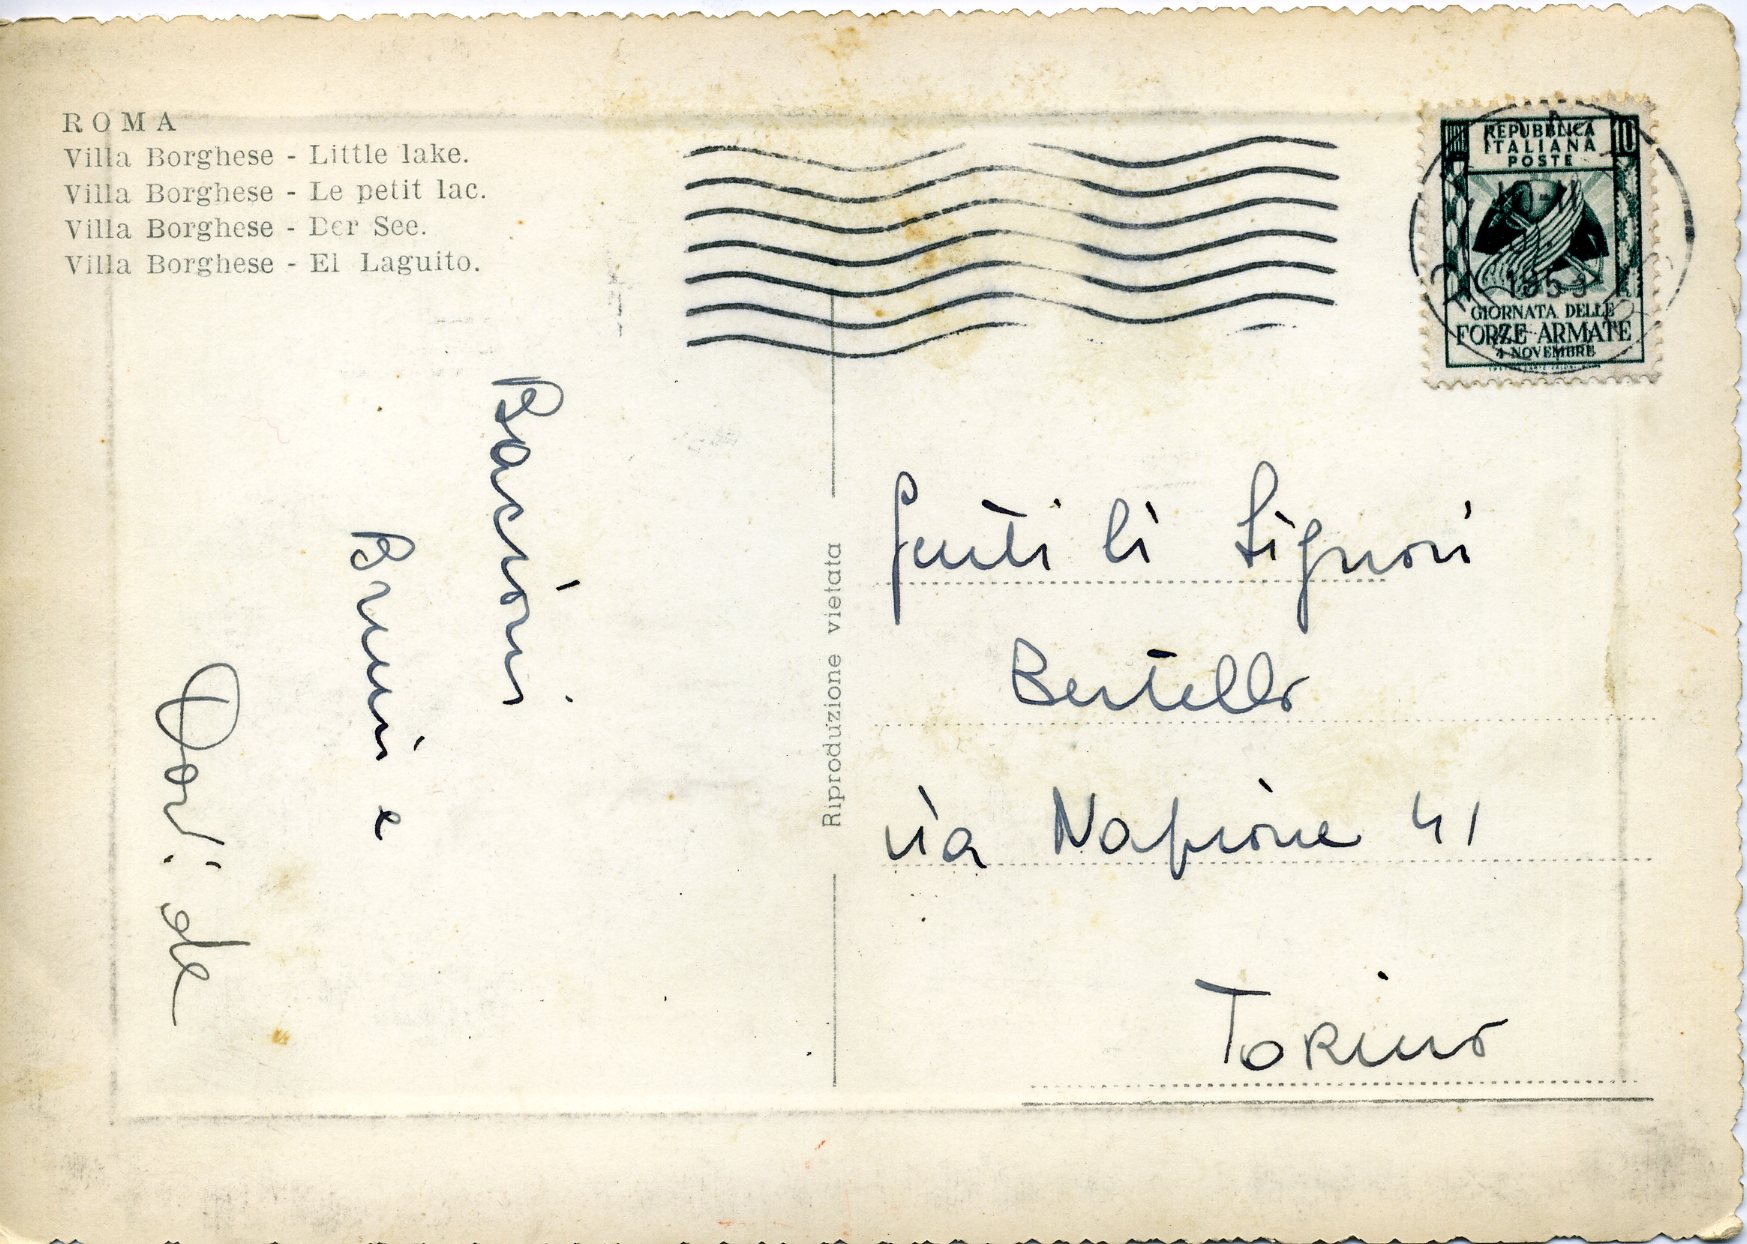 ROMA
Villa Borghese - Little lake.
Villa Borghese - Le petit lac.
Villa Borghese - Der See.
Villa Borghese - El Laguito.
REPUBBLICA
ITALIANA
POSTE
10
1953
GIORNATA DELLE
FORZE ARMATE
4 NOVEMBRE
Bacioni
Bruni e
Riproduzione vietata
Gentili Signori
Bertello
via Napione 41
Torino